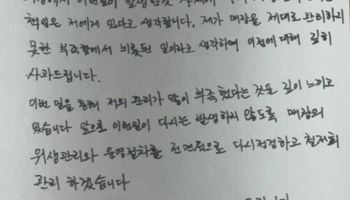 책임은 저에게 있다고 생각합니다. 제가 매장을 제대로 관리하지
못한 부족함에서 비롯된 일이라고 생각하며 이점에 대해 깊히
사과드립니다.
이번 일을 통해 저의 관리가 많이 부족했다는 것을 깊이 느끼고
있습니다 앞으로 이런일이 다시는 발생하지 않도록 매장의
위생관리와 운영절차를 전면적으로 다시점검하고 철저히
관리 하겠습니다